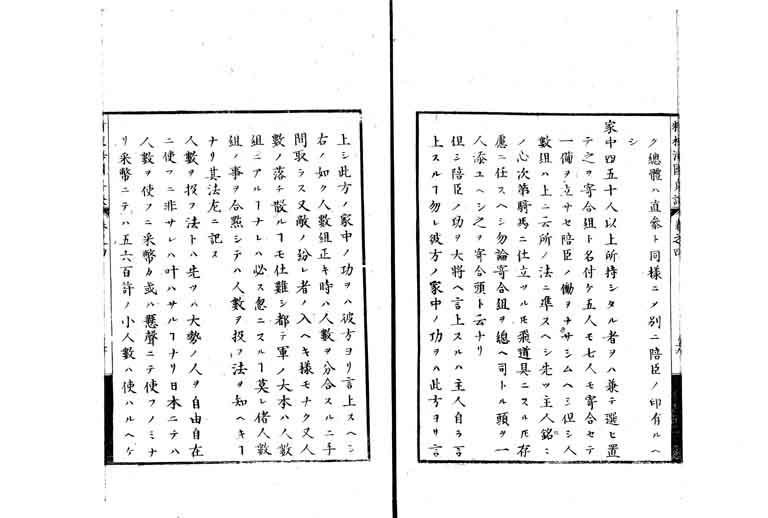 ク總體ハ直參ト同樣ニメ別ニ陪臣ノ印有ルヘ
シ
家中四五十人以上所持シタル者ヲハ兼テ選ヒ置
テ之ヲ寄合組ト名付ケ五人モ七人モ寄合セテ
一備ヲ立サセ陪臣ノ働ヲナサシムヘシ但シ人
數組ハ上ニ云所ノ法ニ準スヘシ先ツ主人銘〻
ノ心次第騎馬ニ仕立ツルモ飛道具ニスルモ存
慮ニ任スヘシ勿論寄合組ヲ總ヘ司トル頭ヲ一
人添ユヘシ之ヲ寄合頭ト云ナリ
但シ陪臣ノ功ヲ大將ヘ言上スルハ主人自ラ言
上スルヿ勿レ彼方ノ家中ノ功ヲハ此方ヨリ言
上シ此方ノ家中ノ功ヲハ彼方ヨリ言上スヘシ
右ノ如ク人數組正キ時ハ人數ヲ分合スルニ手
間取ラス又敵ノ紛レ者ノ入ヘキ樣モナク又人
數ノ落チ散ルヿモ仕難シ都テ軍ノ大本ハ人數
組ニアルヿナレハ必ス忽ニスルヿ莫レ偖人數
組ノ事ヲ合㸃シテハ人數ヲ扱フ法ヲ知ヘキヿ
ナリ其法左ニ記ス
人數ヲ扱フ法トハ先ツハ大勢ノ人ヲ自由自在
ニ使フニ非サレハ叶ハサルヿナリ日本ニテハ
人數ヲ使フニ采幣カ或ハ懸聲ニテ使フノミナ
リ采幣ニテハ五六百許ノ小人數ハ使ハルヘケ